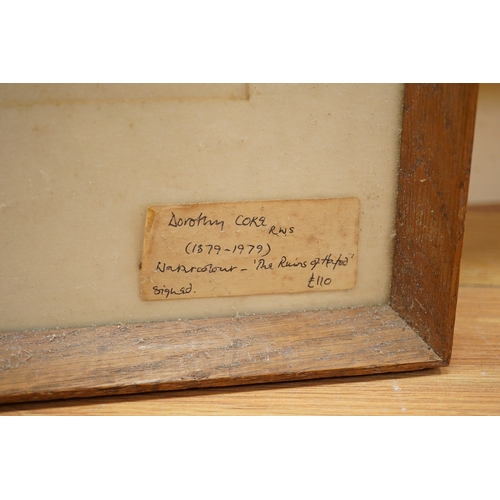 Dorothy COKE
RWS
(1879-1979)
Watercolour - 'The Ruins of Hafod'
Signed. £110